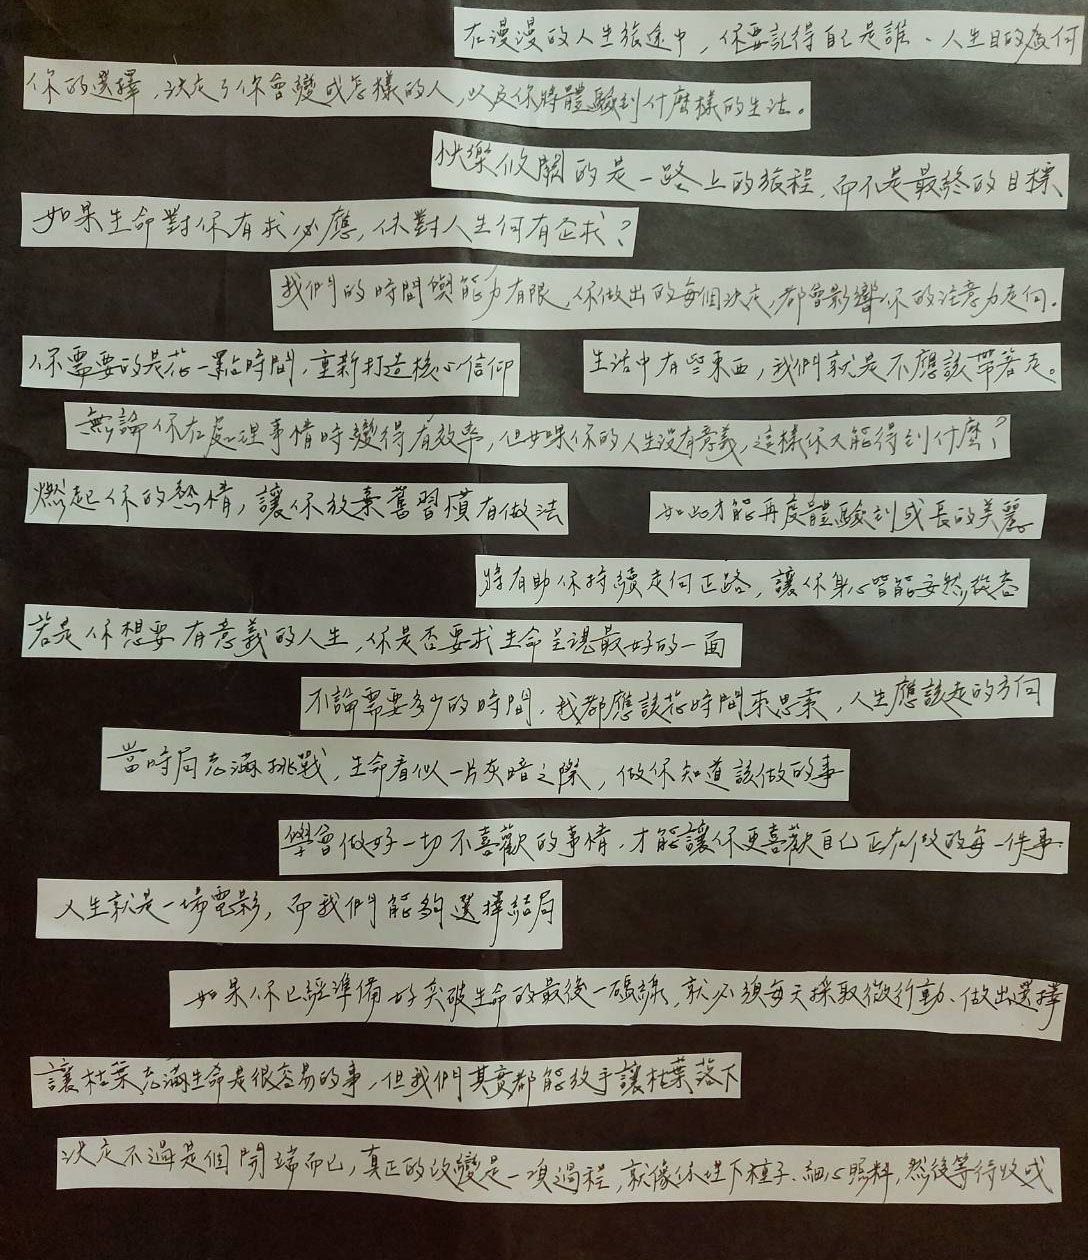 在漫漫的人生旅途中，你要記得自己是誰、人生目的為何
你的選擇，決定了你會變成怎樣的人，以及你將體驗到什麼樣的生活。
快樂攸關的是一路上的旅程，而不是最終的目標、
如果生命對你有求必應，你對人生何有企求？
我們的時間與能力有限，你做出的每個決定，都會影響你的注意力走向。
你需要的是花一點時間，重新打造核心信仰
生活中有些東西，我們就是不應該帶著走。
無論你在處理事情時變得有效率，但如果你的人生沒有意義，這樣你又能得到什麼？
燃起你的熱情，讓你放棄舊習慣有做法
如此才能再度體驗到成長的美麗
將有助你持續走向正路，讓你身心皆能安然從容
若是你想要有意義的人生，你是否要求生命呈現最好的一面
不論需要多少的時間，我都應該花時間來思索，人生應該走的方向
當時局充滿挑戰，生命看似一片灰暗之際，做你知道該做的事
學會做好一切不喜歡的事情，才能讓你更喜歡自己正在做的每一件事
人生就是一場電影，而我們能夠選擇結局
如果你已經準備好突破生命的最後一碼線，就必須每天採取微行動、做出選擇
讓枯葉充滿生命是很容易的事，但我們其實都能放手讓枯葉落下
決定不過是個開端而已，真正的改變是一項過程，就像你埋下種子、細心照料，然後等待收成